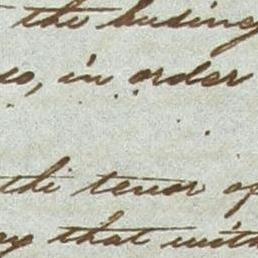 the busines
so, in order
the tenor of
that with